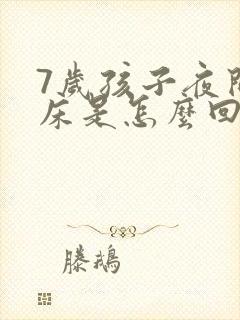 7歲孩子夜間
床是怎麼回
滕鵝